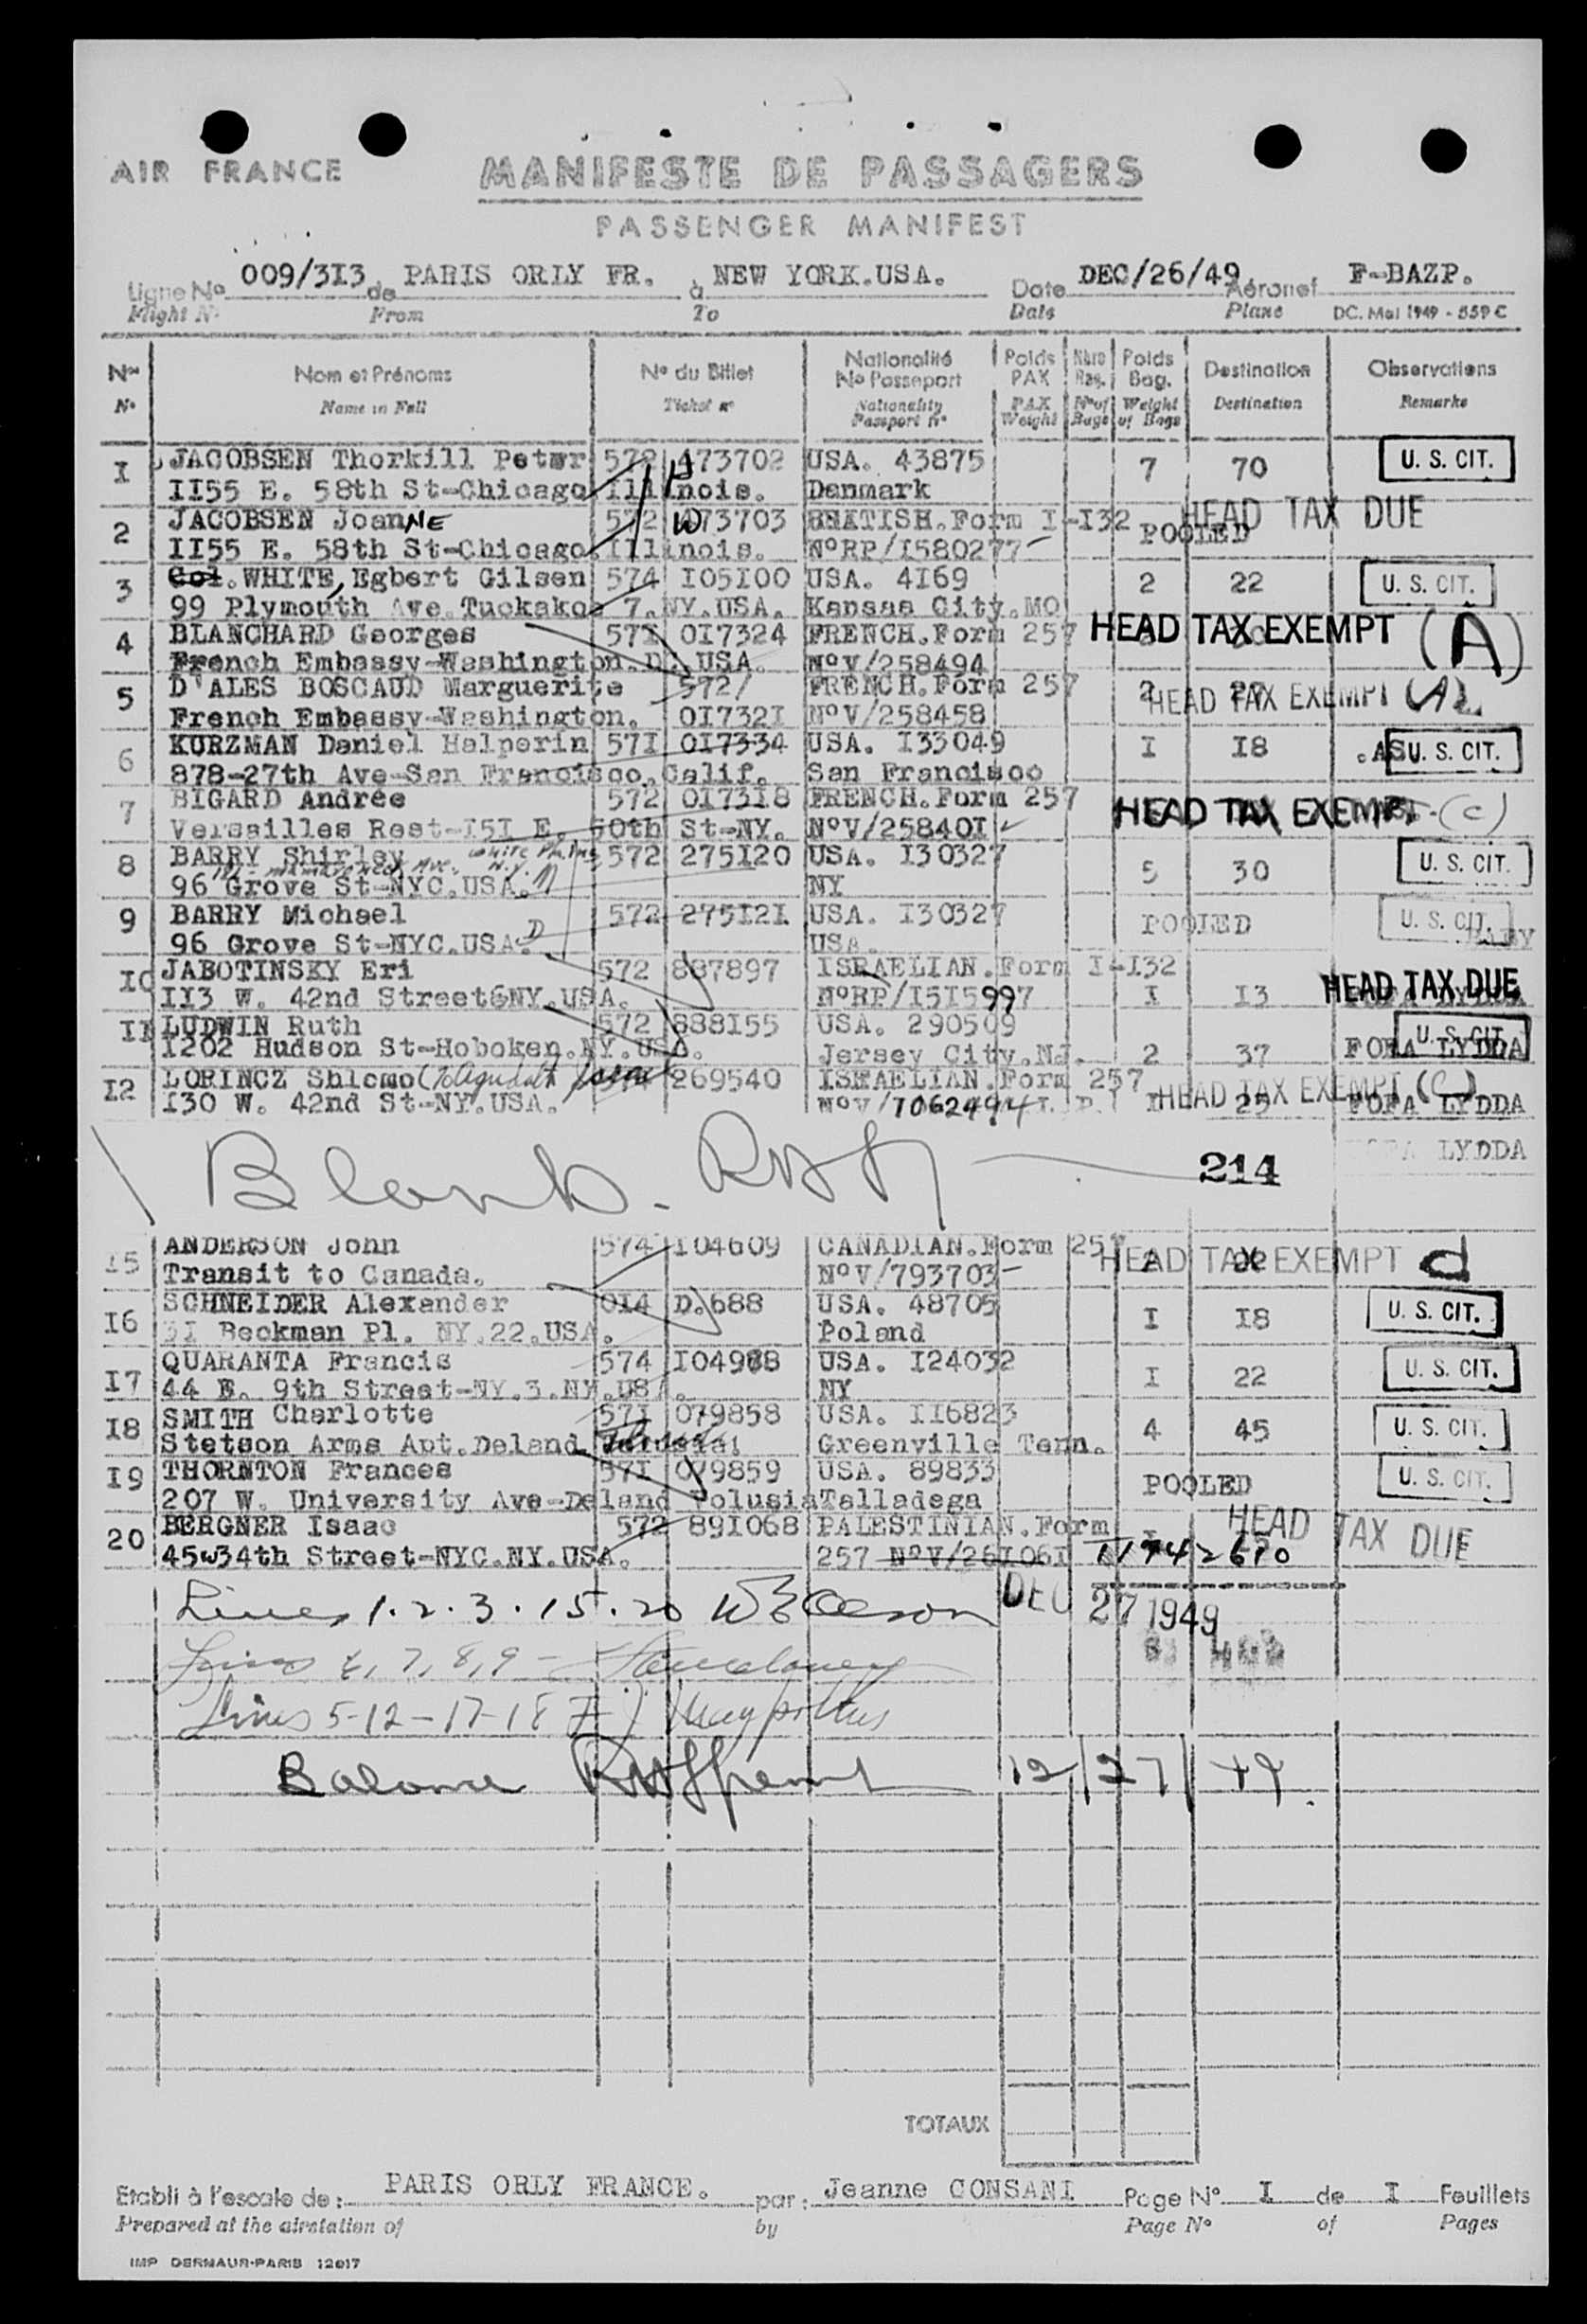 AIR FRANCE
MANIFESTE DE PASSAGERS
PASSENGER MANIFEST
Ligne No 009/3I3 de PARIS ORLY FR. à NEW YORK.USA. Date DEC/26/49 Aéronef F-BAZP.
Flight N° From To Date Plane DC. Mai 1949 - 559 C
Nos Nom et Prénoms No du Billet Nationalité No Passeport Poids PAX Nbre Bag. Poids Bag. Destination Observations
N° Name in Full Ticket n° Nationality Passport n° PAX Weight N° of Bags Weight of Bags Destination Remarks
I JACOBSEN Thorkill Peter 572 473702 USA. 43875 7 70 U. S. CIT.
II55 E. 58th St-Chicago Illinois. Denmark
2 JACOBSEN JoanNE 572 473703 BRITISH.Form I-I32 POOLED HEAD TAX DUE
II55 E. 58th St-Chicago.Illinois. N°RP/I580277
3 Col. WHITE, Egbert Gilsen 574 I05I00 USA. 4I69 2 22 U. S. CIT.
99 Plymouth Ave.Tuckakoe 7.NY.USA. Kansas City.MO
4 BLANCHARD Georges 57I 0I7324 FRENCH.Form 257 HEAD TAX EXEMPT (A)
French Embassy-Washington.D. USA. N°V/258494
5 D'ALES BOSCAUD Marguerite 572/ FRENCH.Form 257 2 HEAD TAX EXEMPT
French Embassy-Washington. 0I732I N°V/258458
6 KURZMAN Daniel Halperin 57I 0I7334 USA. I33049 I I8 U. S. CIT.
878-27th Ave-San Francisco.Calif. San Francisco
7 BIGARD Andrée 572 0I73I8 FRENCH.Form 257 HEAD TAX EXEMPT (C)
Versailles Rest-I5I E. 50th St-NY. N°V/25840I
8 BARRY Shirley White Plains N.Y. 572 275I20 USA. I30327 5 30 U. S. CIT.
96 Grove St-NYC.USA. NY
9 BARRY Michael 572 275I2I USA. I30327 POOLED U. S. CIT.
96 Grove St-NYC.USA. USA.
I0 JABOTINSKY Eri 572 887897 ISRAELIAN.Form I-I32 I I3 HEAD TAX DUE
II3 W. 42nd Street NY.USA. N°RP/I5I5997
II LUDWIN Ruth 572 888I55 USA. 290509 2 37 U. S. CIT.
I202 Hudson St-Hoboken.NY.USA. Jersey City.NJ. FOFA LYDDA
I2 LORINCZ Shlomo 269540 ISRAELIAN.Form 257 HEAD TAX EXEMPT (C)
I30 W. 42nd St-NY.USA. N°V/706249 I 25 FOFA LYDDA
Blank 214 LYDDA
I5 ANDERSON John 574 I04609 CANADIAN.Form 257 HEAD TAX EXEMPT d
Transit to Canada. N°V/793703
I6 SCHNEIDER Alexander 0I4 D.688 USA. 48705 I I8 U. S. CIT.
3I Beekman Pl. NY.22.USA. Poland
I7 QUARANTA Francis 574 I04988 USA. I24032 I 22 U. S. CIT.
44 E. 9th Street-NY.3.NY.USA. NY
I8 SMITH Charlotte 57I 079858 USA. II6823 4 45 U. S. CIT.
Stetson Arms Apt.Deland Greenville Tenn.
I9 THORNTON Frances 57I 079859 USA. 89833 POOLED U. S. CIT.
207 W. University Ave-Deland Volusia Talladega
20 BERGNER Isaac 572 89I068 PALESTINIAN.Form HEAD TAX DUE
45w34th Street-NYC.NY.USA. 257 N°V/26I06I
Lines 1.2.3.15.20 DEC 27 1949
Lines 7, 8, 9
Lines 5-12-17-18
Balance 12/27/49
TOTAUX
Etabli à l'escale de: PARIS ORLY FRANCE. par: Jeanne CONSANI Page N° I de I Feuillets
Prepared at the airstation of by Page N° of Pages
IMP DERMAUR-PARIS 12017